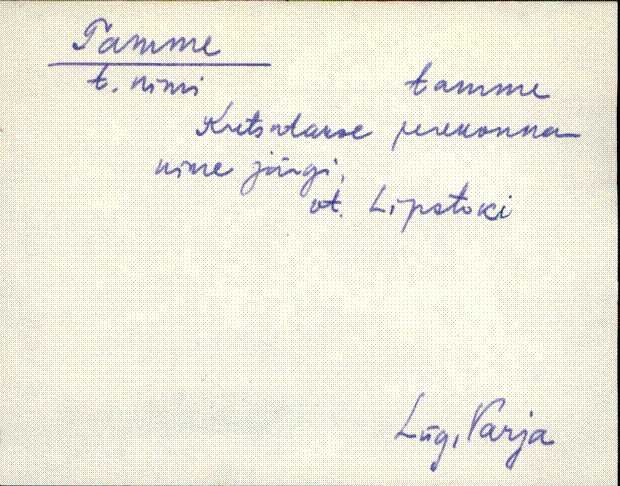 Tamme
t. nimi tamme
Kretsndanse perekonna-
nime järgi,
vt. Lipstoki
Lüg, Varja